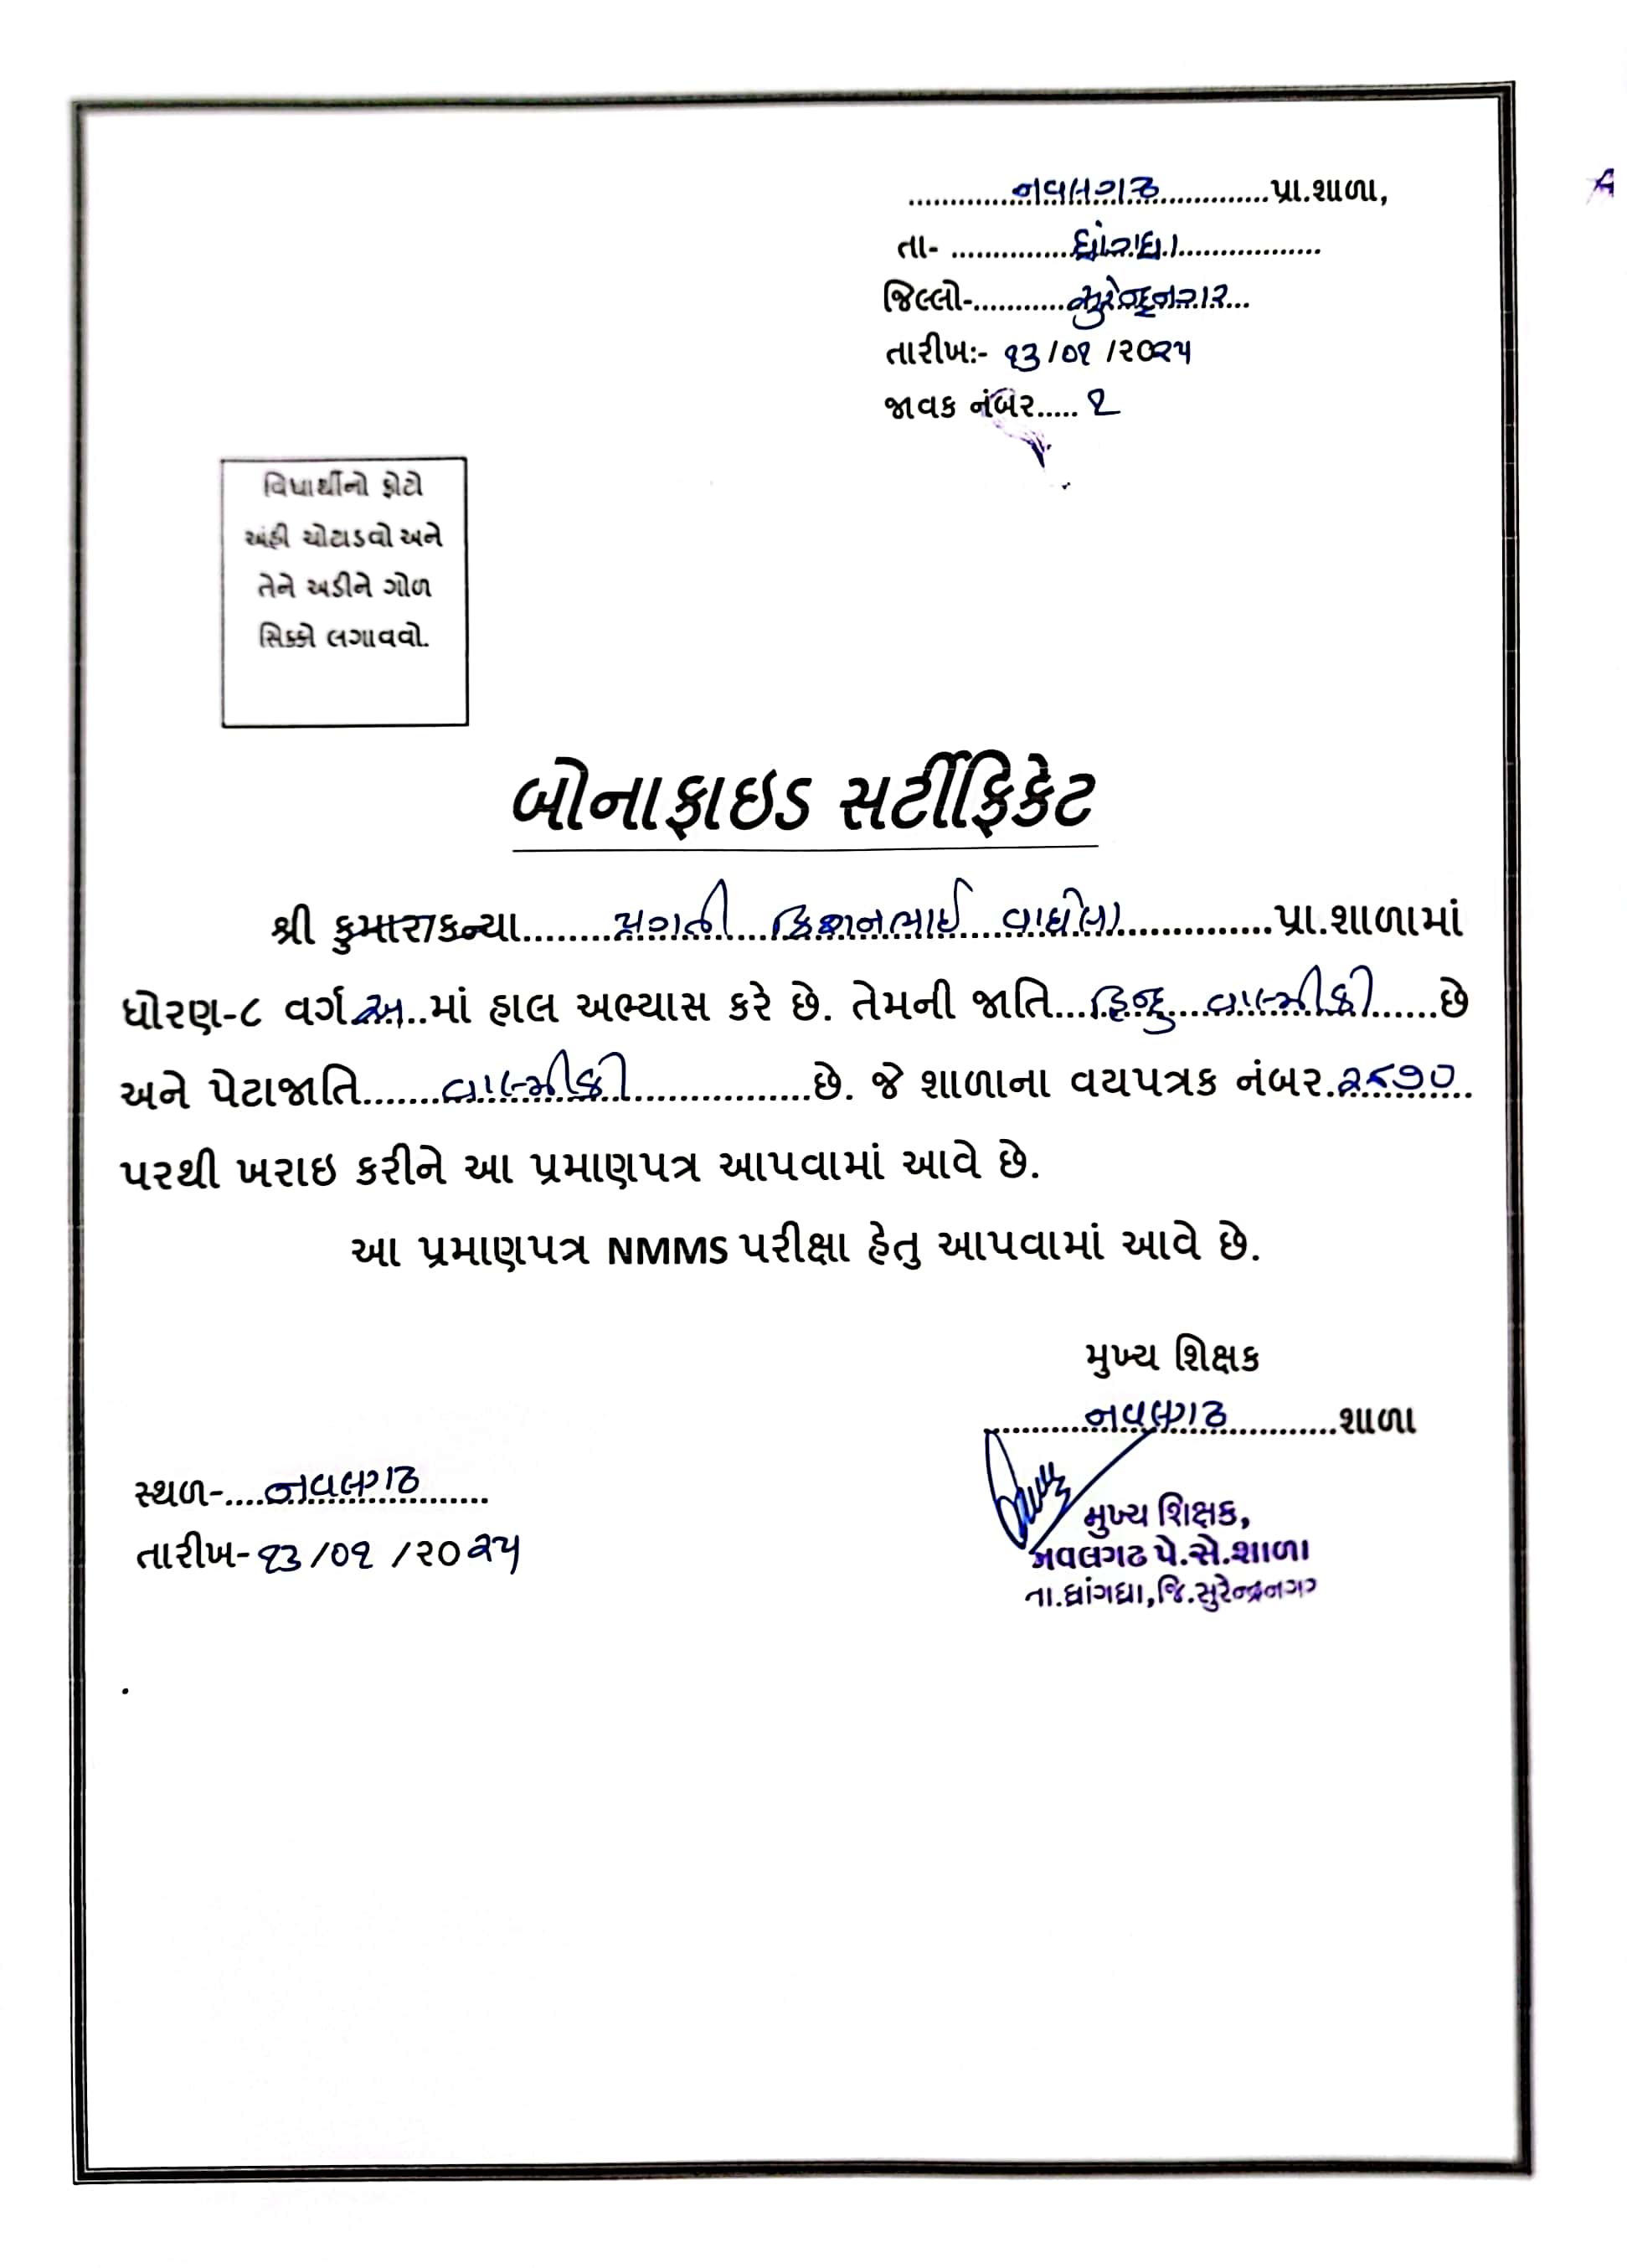 નવલગઢ પ્રા.શાળા,
તા- ધ્રાંગધ્રા
જિલ્લો- સુરેન્દ્રનગર
તારીખ:- ૧૩/૦૧/૨૦૨૫
જાવક નંબર..... ૨
વિધાર્થીનો ફોટો
અંહી ચોટાડવો અને
તેને અડીને ગોળ
સિક્કો લગાવવો.
બોનાફાઇડ સર્ટીફિકેટ
શ્રી કુમાર/કન્યા કિશનભાઈ વાઘેલા પ્રા.શાળામાં
ધોરણ-૮ વર્ગ અ માં હાલ અભ્યાસ કરે છે. તેમની જાતિ હિન્દુ વાલ્મીકી છે
અને પેટાજાતિ વાલ્મીકી છે. જે શાળાના વયપત્રક નંબર ૨૮૭૦
પરથી ખરાઇ કરીને આ પ્રમાણપત્ર આપવામાં આવે છે.
આ પ્રમાણપત્ર NMMS પરીક્ષા હેતુ આપવામાં આવે છે.
મુખ્ય શિક્ષક
નવલગઢ શાળા
સ્થળ- નવલગઢ
તારીખ- ૧૩/૦૧/૨૦૨૫
મુખ્ય શિક્ષક,
નવલગઢ પે.સે.શાળા
તા.ધ્રાંગધ્રા,જિ.સુરેન્દ્રનગર